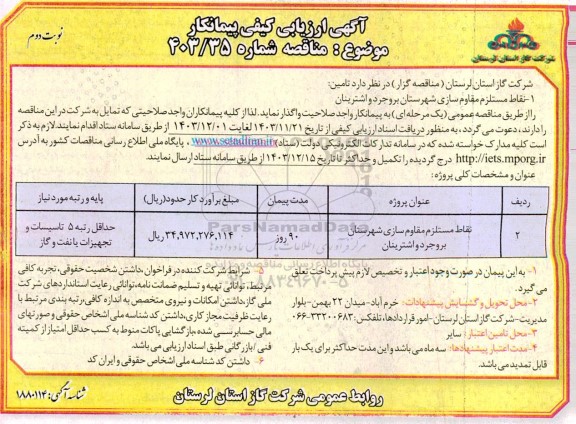 آگهی ارزیابی کیفی پیمانکار
موضوع : مناقصه شماره ۴۰۳/۳۵
نوبت دوم
شرکت گاز استان لرستان
شرکت گاز استان لرستان ( مناقصه گزار ) در نظر دارد تامین:
۱- نقاط مستلزم مقاوم سازی شهرستان بروجرد و اشترینان
را از طریق مناقصه عمومی (یک مرحله ای) به پیمانکار واجد صلاحیت واگذار نماید. لذا از کلیه پیمانکاران واجد صلاحیتی که تمایل به شرکت در این مناقصه
را دارند، دعوت می گردد، به منظور دریافت اسناد ارزیابی کیفی از تاریخ ۱۴۰۳/۱۱/۲۱ لغایت ۱۴۰۳/۱۲/۰۱ از طریق سامانه ستاد اقدام نمایند. لازم به ذکر
است کلیه مدارک خواسته شده که در سامانه تدارکات الکترونیکی دولت (ستاد) www.setadiran.ir ، پایگاه ملی اطلاع رسانی مناقصات کشور به آدرس
http://iets.mporg.ir درج گردیده را تکمیل و حداکثر تا تاریخ ۱۴۰۳/۱۲/۱۵ از طریق سامانه ستاد ارسال نمایند.
عنوان و مشخصات کلی پروژه :
ردیف | عنوان پروژه | مدت پیمان | مبلغ برآورد کار حدود(ریال) | پایه و رتبه مورد نیاز
۲ | نقاط مستلزم مقاوم سازی شهرستان بروجرد و اشترینان | ۹۰ روز | ۳۴,۹۷۲,۲۷۶,۱۱۴ ریال | حداقل رتبه ۵ تاسیسات و تجهیزات یا نفت و گاز
۱- به این پیمان در صورت وجود اعتبار و تخصیص لازم پیش پرداخت تعلق
می گیرد.
۲- محل تحویل و گشایش پیشنهادات: خرم آباد- میدان ۲۲ بهمن- بلوار
مدیریت- شرکت گاز استان لرستان - امور قراردادها، تلفکس: ۳۳۲۰۰۶۸۳-۰۶۶
۳- محل تامین اعتبار : سایر
۴- مدت اعتبار پیشنهادها: سه ماه می باشد و این مدت حداکثر برای یک بار
قابل تمدید می باشد.
۵- شرایط شرکت کننده در فراخوان، داشتن شخصیت حقوقی، تجربه کافی
مرتبط، توانائی تهیه و تسلیم ضمانت نامه، توانائی رعایت استانداردهای شرکت
ملی گاز، داشتن امکانات و نیروی متخصص به اندازه کافی، رتبه بندی مرتبط با
رعایت ظرفیت مجاز کاری، داشتن کد شناسه ملی اشخاص حقوقی و صورتهای
مالی حسابرسی شده ،بازگشایی پاکات منوط به کسب حداقل امتیاز از کمیته
فنی / بازرگانی طبق اسناد ارزیابی می باشد.
۶- داشتن کد شناسه ملی اشخاص حقوقی و ایران کد
روابط عمومی شرکت گاز استان لرستان
شناسه آگهی: ۱۸۸۰۱۱۴